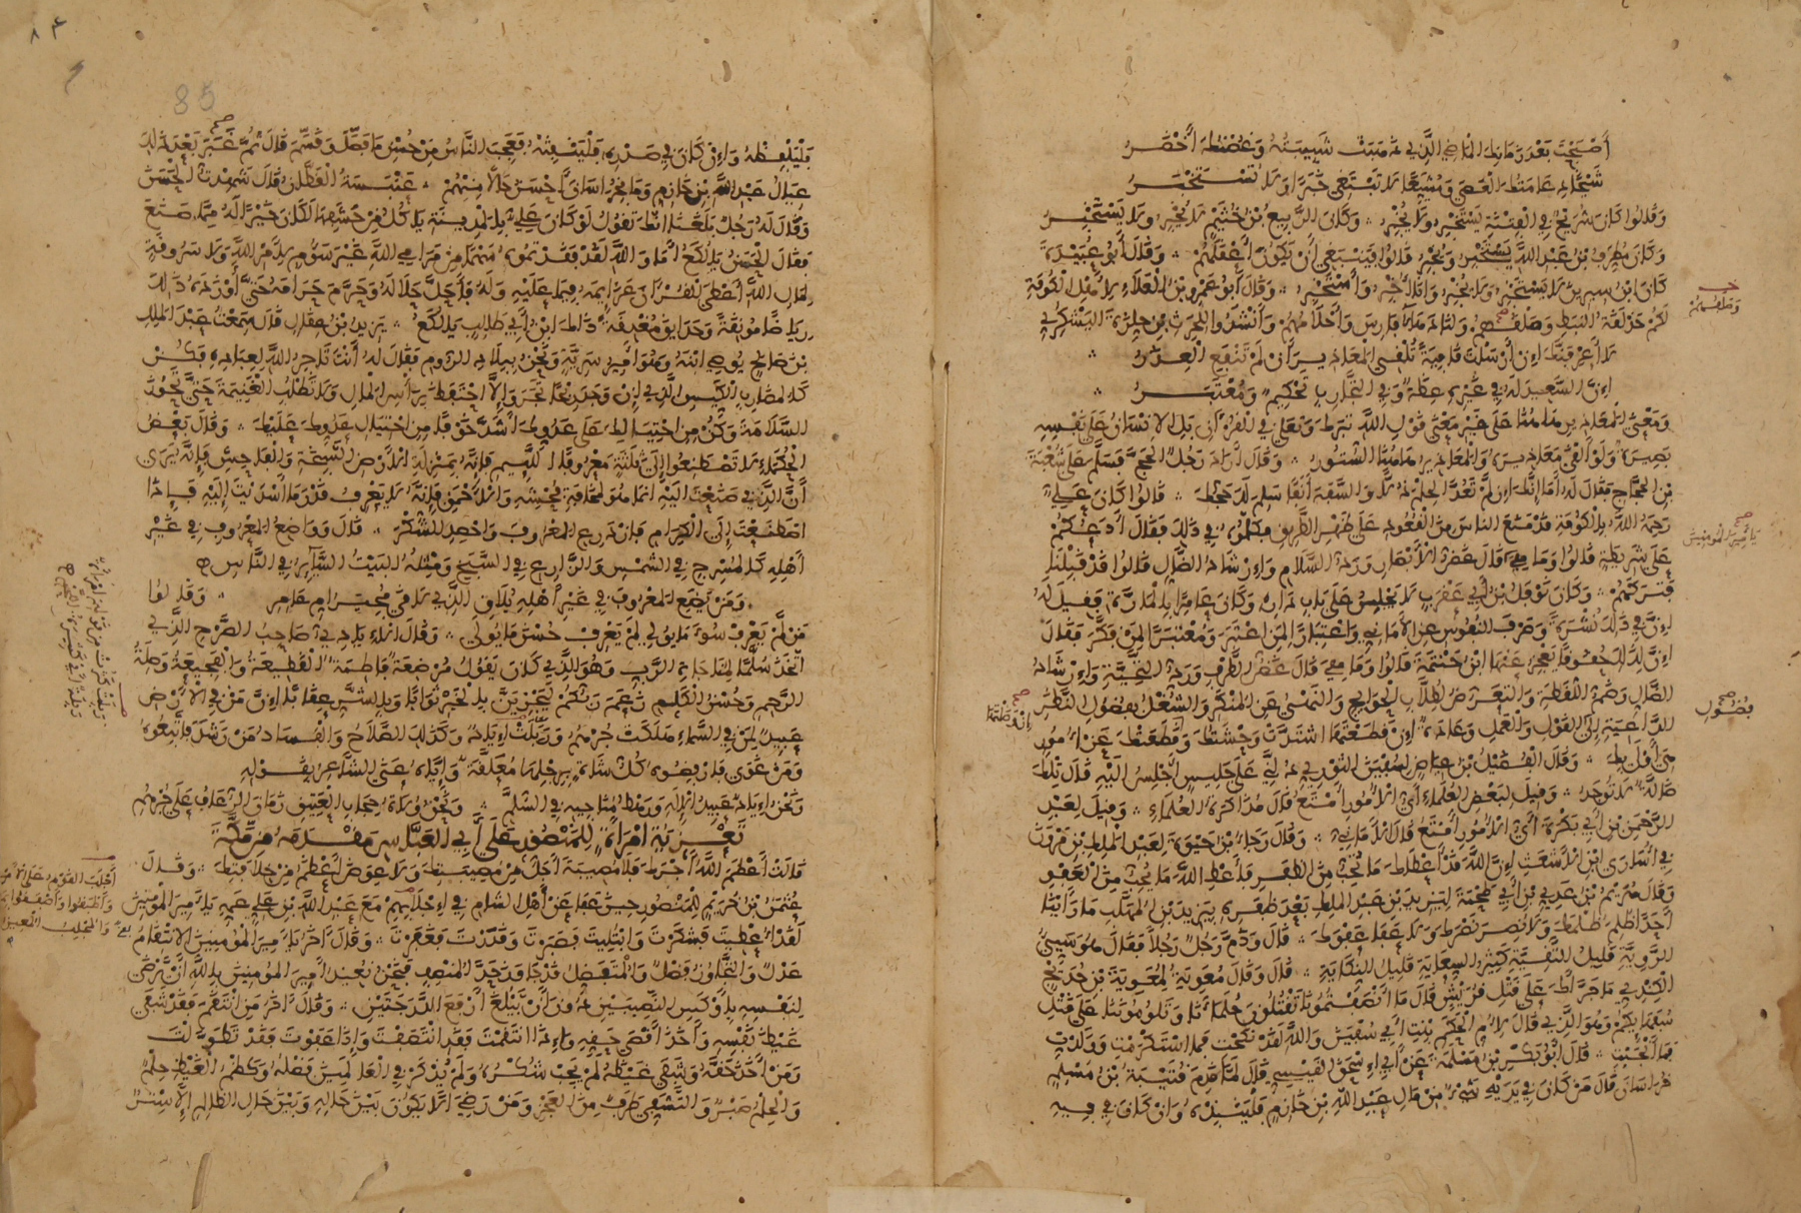 أصبحت بعد زمانك الماضي الذي ذهبت شبيبته وغصنك أخضر
شيخا دعامتك العصا ومشيعا لا تبتغي خبرا ولا تستخبر
وقالوا كان شريح في الفتنة يستخبر ولا يخبر وكان الربيع بن خثيم لا يخبر ولا يستخبر
وكان مطرف بن عبد الله يستخبر ويخبر قالوا فينبغي أن يكون أعقلهم وقال أبو عبيدة
كان ابن سيرين لا يستخبر ولا يخبر وأنا أخبر وأستخبر وقال أبو عمرو بن العلاء لأهل الكوفة
لكم حذلقة النبط وصلفهم ولنا دهاء فارس وأحلامهم وأنشدوا للحرث بن حلزة اليشكري
لا أعرفنك إن أرسلت قافية تلقي المعاذير أن لم تنفع العذر
إن السعيد له في غيره عظة وفي التجارب تحكيم ومعتبر
ومعنى المعاذير هاهنا على غير معنى قول الله تبارك وتعالى في القرآن بل الإنسان على نفسه
بصيرة ولو ألقى معاذيره والمعاذير هاهنا الستور وقال أراد رجل الحج فسلم على شعبة
بن الحجاج فقال له أما إنك إن لم تعد الحلم ذلا والسفه أنفا سلم لك حجك قالوا كان علي
رحمه الله بالكوفة قد منع الناس من القعود على ظهر الطريق فكلموه في ذلك فقال أدعكم
على شريطة قالوا وما هي قال غض الأبصار ورد السلام وإرشاد الضال قالوا قد قبلنا
فتركهم وكان نوفل بن أبي عقرب لا يجلس على باب داره وكان عامرا بالمارة فقيل له
إن في ذلك نشرة وصرف النفوس عن الأماني واعتبارا لمن اعتبر ومعتبرا لمن فكر فقال
إن لذلك حقوقا يعجز عنها ابن خيثمة قالوا وما هي قال غض الطرف ورد التحية وإرشاد
الضال وضم اللقطة والتعرض لطلاب الحوائج والنهي عن المنكر والشغل بفضول النظر
الداعية إلى القول والعمل وعادة إن قطعتها اشتدت وحشتك وقطعتك عن أمور
هي أولى بك وقال الفضيل بن عياض لسفين الثوري دلني على جليس أجلس إليه قال تلك
ضالة لا توجد وقيل لبعض العلماء أي الأمور أمتع قال مذاكرة العلماء وقيل لعبد
الرحمن بن أبي بكرة أي الأمور أمتع قال الأماني وقال رجاء بن حيوة لعبد الملك بن مروان
في أسارى ابن الأشعث إن الله قد أعطاك ما تحب من الظفر فأعط الله ما يحب من العفو
وقال هريم بن عدي بن أبي طحمة ليزيد بن عبد الملك بعد ظفره بيزيد بن المهلب ما رأينا
أحدا ظلم ظلمك ولا نصر نصرك ولا عفا عفوك قال وذم رجل رجلا فقال هو سيئ
الروية قليل التقية كثير السعاية قليل النكاية قال وقال معوية لمعوية بن حديج
الكندي ما جرأك على قتل قريش قال ما أنصفتمونا تقتلون حلماءنا وتلوموننا على قتل
سفهائكم وهو الذي قال لأم الحكم بنت أبي سفين والله لقد نكحت فما استكرمت وولدت
فما أنجبت قال أبو بكر بن مسلمة عن أبي إسحق القيسي قال لما قدم قتيبة بن مسلم
خراسان قال من كان في يديه شيء من مال عبد الله بن خازم فلينبذه وإن كان في فيه
يا أمير المومنين
فضول
85
فليلفظه وإن كان في صدره فلينفثه فعجب الناس من حسن ما فصل وقسم قال ثم غبر بعد ذلك
عيال عبد الله بن خازم وما بخراسان أحسن حالا منهم عنبسة القطان قال شهدت الحسن
وقال له رجل بلغنا أنك تقول لو كان علي بالمدينة يأكل من حشفها لكان خيرا له مما صنع
فقال الحسن يا لكع أما والله لقد فقدتموه سهما من مرامي الله غير سؤوم لأمر الله ولا سروقة
لمال الله أعطى القرآن عزائمه فيما عليه وله فأحل حلاله وحرم حرامه حتى أورده ذلك
رياضا مونقة وحدائق مغدقة ذلك ابن أبي طالب يا لكع يزيد بن عقال قال سمعت عبد الملك
بن صالح يوصي ابنه وهو أمير سرية ونحن ببلاد الروم فقال له أنت تاجر الله لعباده فكن
كالمضارب الكيس الذي إن وجد ربحا تجر وإلا احتفظ برأس المال ولا تطلب الغنيمة حتى تحوز
السلامة وكن من احتيالك على عدوك أشد خوفا من احتيال عدوك عليك وقال بعض
الحكماء لا تصطنعوا إلى ثلثة معروفا اللئيم فإنه بمنزلة الأرض السبخة والفاحش فإنه يرى
أن الذي صنعت إليه إنما هو لمخافة فحشه والأحمق فإنه لا يعرف قدر ما أسديت إليه فإذا
اصطنعت إلى الكرام فازدرع المعروف واحصد الشكر قال وواضع المعروف في غير
أهله كالمسرج في الشمس والزارع في السبخ ومثله البيت السائر في الناس
ومن يصنع المعروف في غير أهله يلاق الذي لاقى مجير ام عامر وقالوا
من لم يعرف سوء ما يولي لم يعرف حسن ما يولى وقال الإيادي صاحب الصرح الذي
اتخذ سلما لمناجاة الرب وهو الذي كان يقول مرضعة فاطمة القطيعة والفجيعة وصلة
الرحم وحسن الكلم زعم ربكم ليجزين بالخير ثوابا وبالشر عقابا إن من في الأرض
عبيد لمن في السماء هلكت جرهم وربلت إياد وكذلك الصلاح والفساد من رشد فاتبعوه
ومن غوى فارفضوه كل شاة برجلها معلقة وإياه عنى الشاعر بقوله
ونحن إياد عبيد الإله ورهط مناجيه في السلم ونحن ولاة حجاب العتيق زمان الرعاف على جرهم
تعزية امرأة للمنصور على أبي العباس مقدمه من مكة
قالت أعظم الله أجرك فلا مصيبة أجل من مصيبتك ولا عوض أعظم من خلافتك وقال
عثمن بن خريم للمنصور حين عفا عن أهل الشام في إجلابهم مع عبد الله بن علي عمه يا أمير المومنين
لقد أعطيت فشكرت وابتليت فصبرت وقدرت فغفرت وقال آخر يا أمير المومنين الانتقام
عدل والتجاوز فضل والمتفضل قد جاوز حد المنصف فنحن نعيذ أمير المومنين بالله أن يرضى
لنفسه بأوكس النصيبين دون أن يبلغ أرفع الدرجتين وقال آخر من انتقم فقد شفى
غيظ نفسه وأخذ أقصى حقه وإذا انتقمت فقد انتصفت وإذا عفوت فقد تطولت
ومن أخذ حقه وشفى غيظه لم يجب شكره ولم يذكر في العالمين فضله وكظم الغيظ حلم
والحلم صبر والتشفي طرف من العجز ومن رضي ألا يكون بين حاله وبين حال الظالم إلا ستر